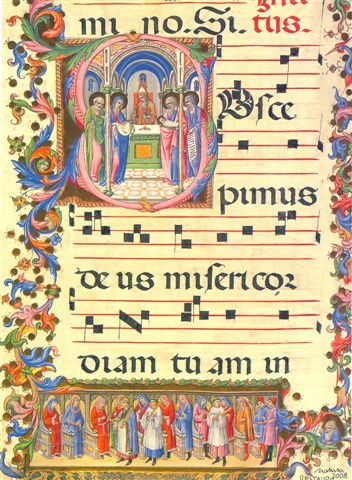 mi no. Si. tus.
SUsce
pimus
de us misericor
diam tu am in
2008